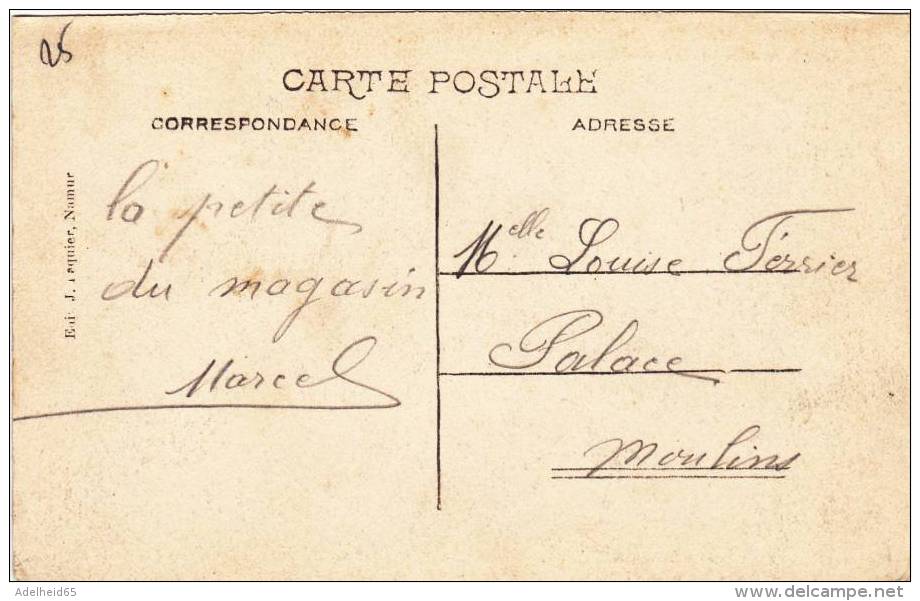 25
CARTE POSTALE
CORRESPONDANCE
ADRESSE
la petite
du magasin
Marcel
Melle Louise Ferrier
Palace
Moulins
J. Namur
Adelheid65
delcampe.net